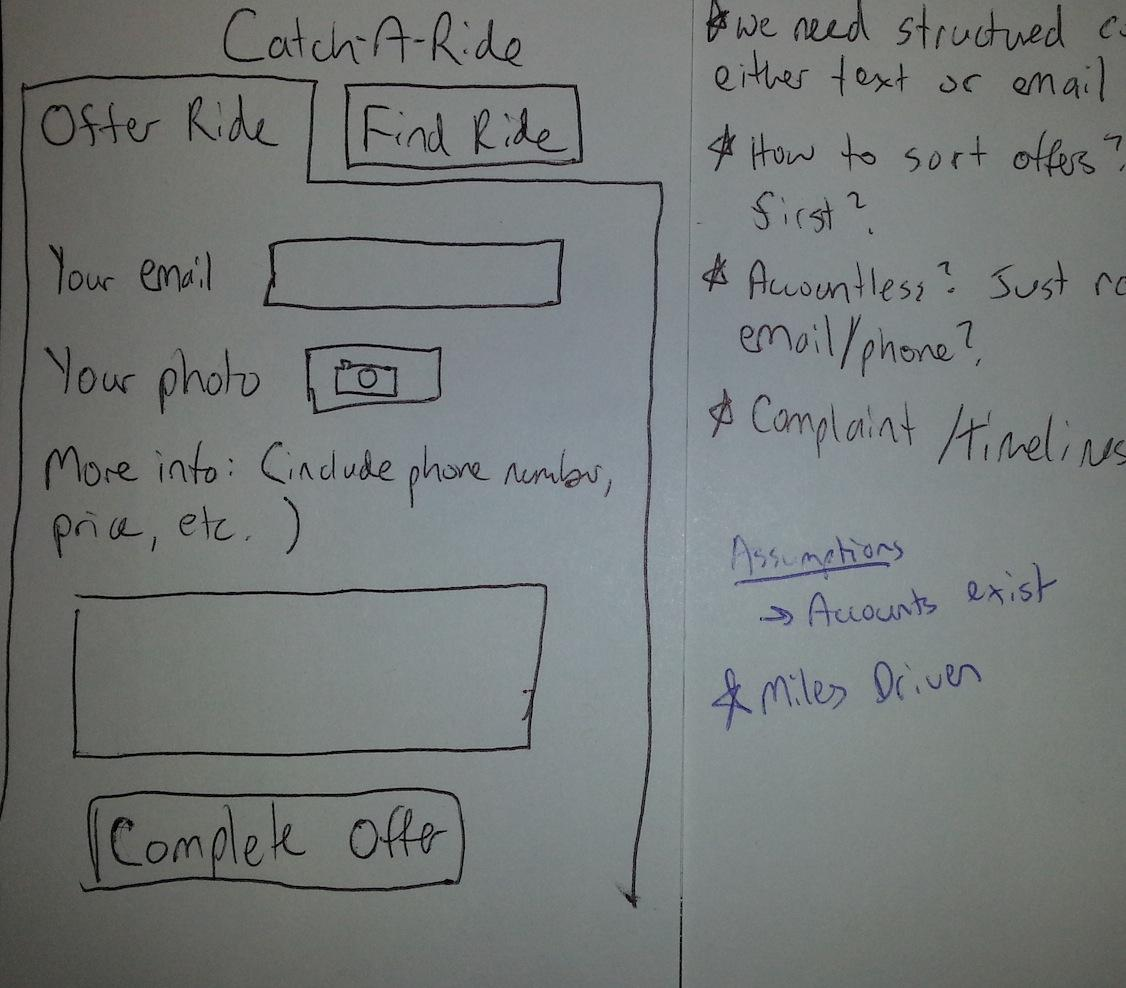 Catch-A-Ride
Offer Ride
Find Ride
Your email
Your photo
More info: (include phone number,
price, etc. )
Complete Offer
* we need structured
either text or email
* How to sort offers?
first?
* Accountless? Just
email/phone?
* Complaint /timelines
Assumptions
→ Accounts exist
* Miles Driven